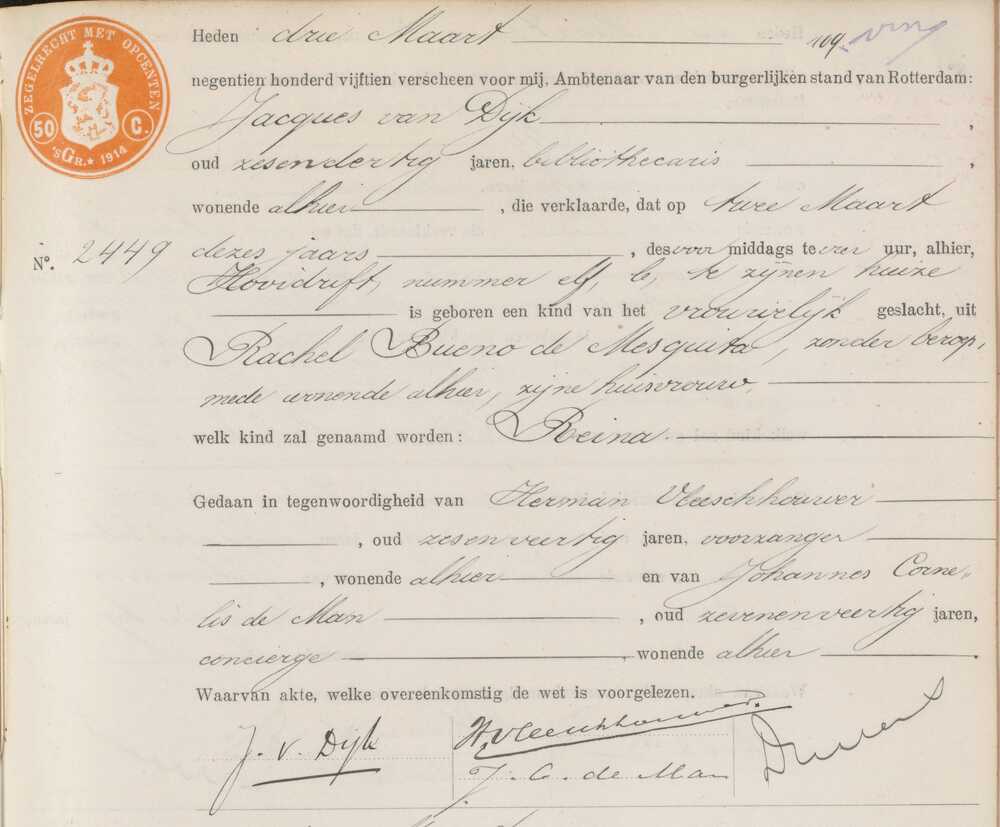 ZEGELRECHT MET OPCENTEN
50 C.
'sGR.* 1914
Heden drie Maart 109
negentien honderd vijftien verscheen voor mij, Ambtenaar van den burgerlijken stand van Rotterdam:
Jacques van Dijk,
oud zesendertig jaren, bibliothecaris,
wonende alhier, die verklaarde, dat op twee Maart
No. 2449 dezes jaars, des voor middags te vier uur, alhier,
nummer elf, b, te zijnen huize
is geboren een kind van het vrouwelijk geslacht, uit
Rachel Bueno de Mesquita, zonder beroep,
mede wonende alhier, zijne huisvrouw.
welk kind zal genaamd worden: Reina.
Gedaan in tegenwoordigheid van Herman Vleeschhouwer
, oud zesenveertig jaren, voorzanger
, wonende alhier en van Johannes Corne-
lis de Man, oud zevenenveertig jaren,
concierge, wonende alhier.
Waarvan akte, welke overeenkomstig de wet is voorgelezen.
J. v. Dijk
H. Vleeschhouwer.
J. C. de Man